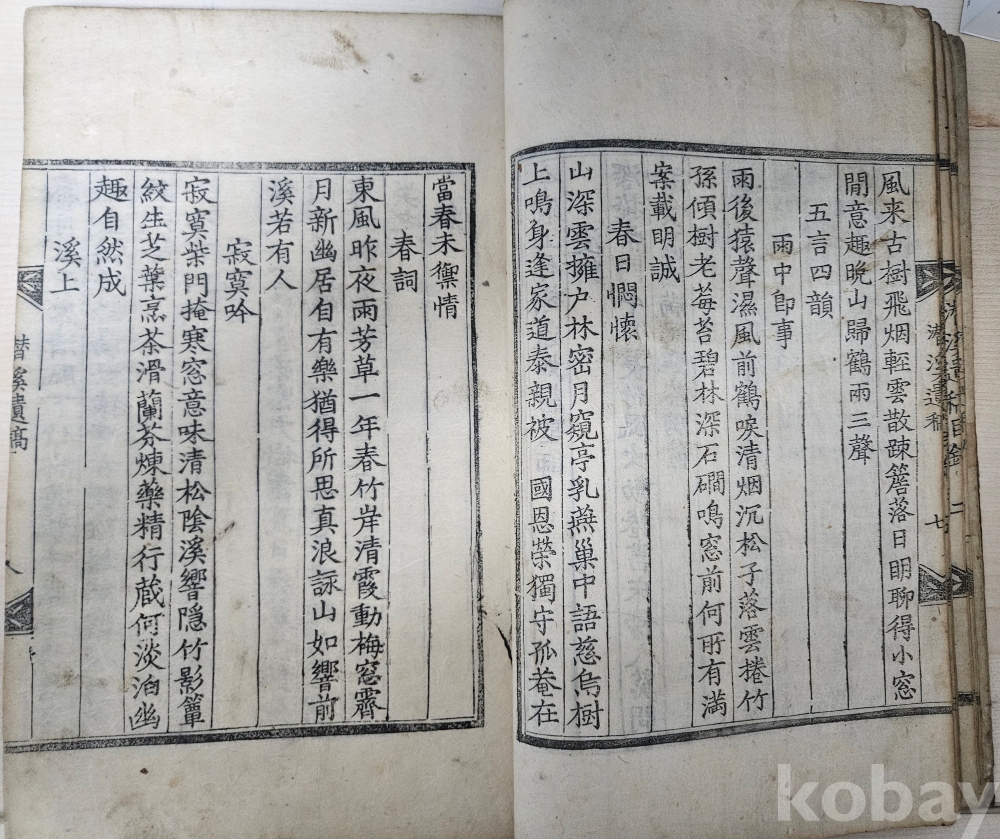 風来古樹飛烟輕雲散踈簷落日明聊得小窓
閒意趣晩山歸鶴雨三聲
五言四韻
雨中卽事
雨後猿聲濕風前鶴唳清烟沉松子落雲捲竹
孫傾樹老莓苔碧林深石磵鳴窓前何所有滿
案載明誠
春日憫懷
山深雲擁户林密月窺亭乳燕巢中語慈烏樹
上鳴身逢家道泰親被 國恩榮獨守孤菴在
潛溪遺稿
七
二
當春未禦情
春詞
東風昨夜雨芳草一年春竹岸清霞動梅窓霽
月新幽居自有樂猶得所思真浪詠山如響前
溪若有人
寂寞吟
寂寞柴門掩寒窓意味清松陰溪響隠竹影簟
紋生芝葉烹茶滑蘭芬煉藥精行蔵何淡泊幽
趣自然成
溪上
潛溪遺稿
八
kobay